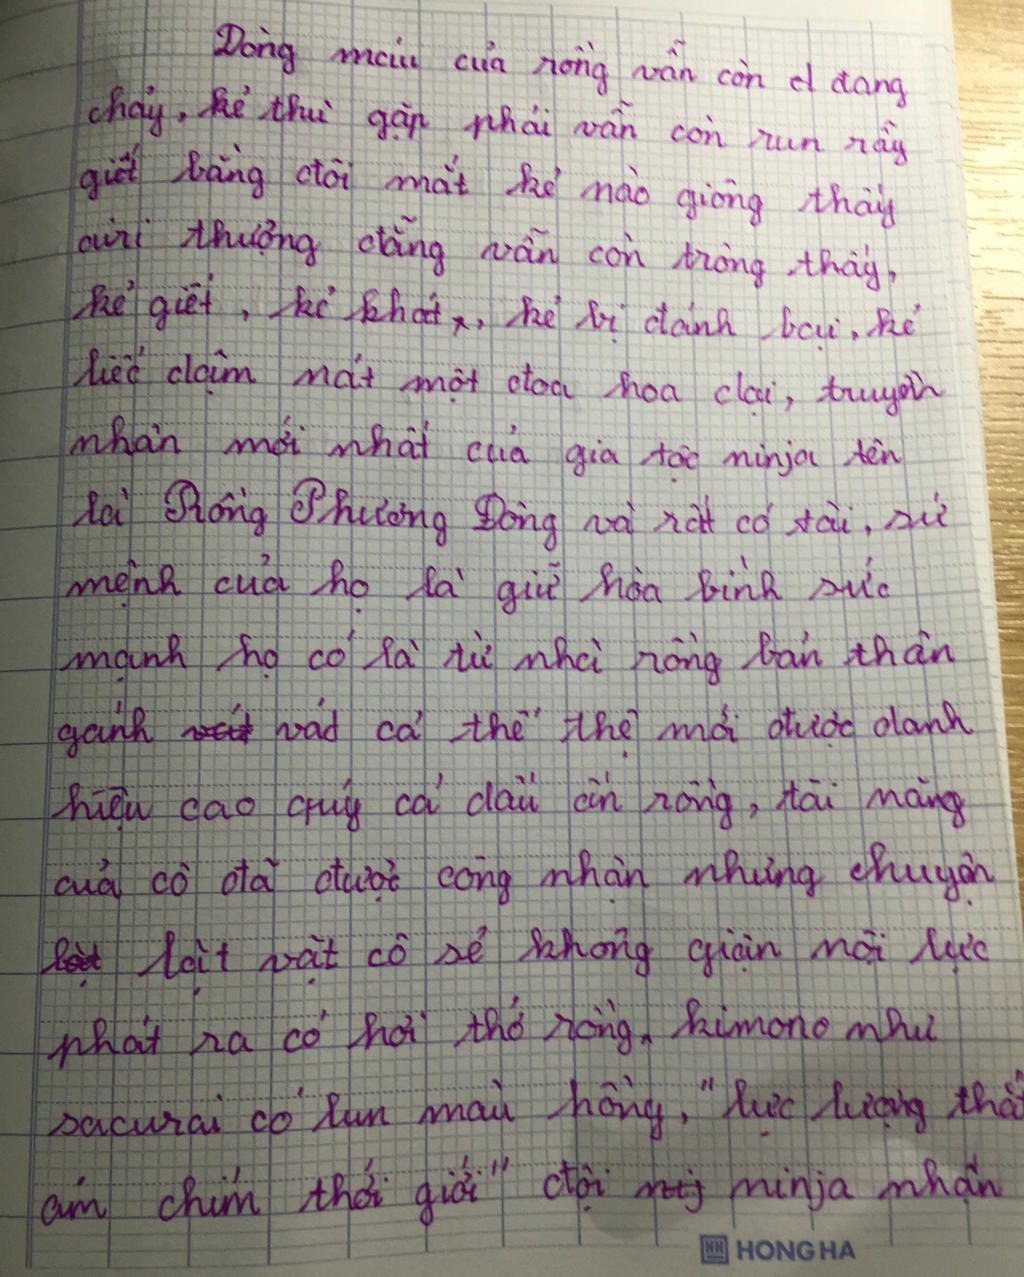 Dòng máu của rồng vẫn còn đ đang
chảy, kẻ thù gặp phải vẫn còn run rẩy
giết bằng đôi mắt kẻ nào giông thấy
cưri thượng đẵng vẫn còn tròng thấy,
kẻ giết, kẻ khát, kẻ bị đánh bại, kẻ
liếc dậm nát một đoa hoa dại, truyên
nhân mới nhất của gia tộc ninja tên
là Rồng Phương Đông và rất có tài, sứ
mệnh của họ là giữ hòa bình sức
mạnh họ có là từ nhà rồng bản thân
gánh vád cả thế thệ mới được danh
hiệu cao quý cá dấu ấn rồng, tài măng
của cô đã được công nhận nhưng chuyện
lặt vặt cô sẻ không giận mõi lực
phát ra có hơi thở ròng, kimono như
sacurai có lun màu hồng, "lực lượng thất
ám chiếm thới giới" đội ninja nhẫn
HONG HA